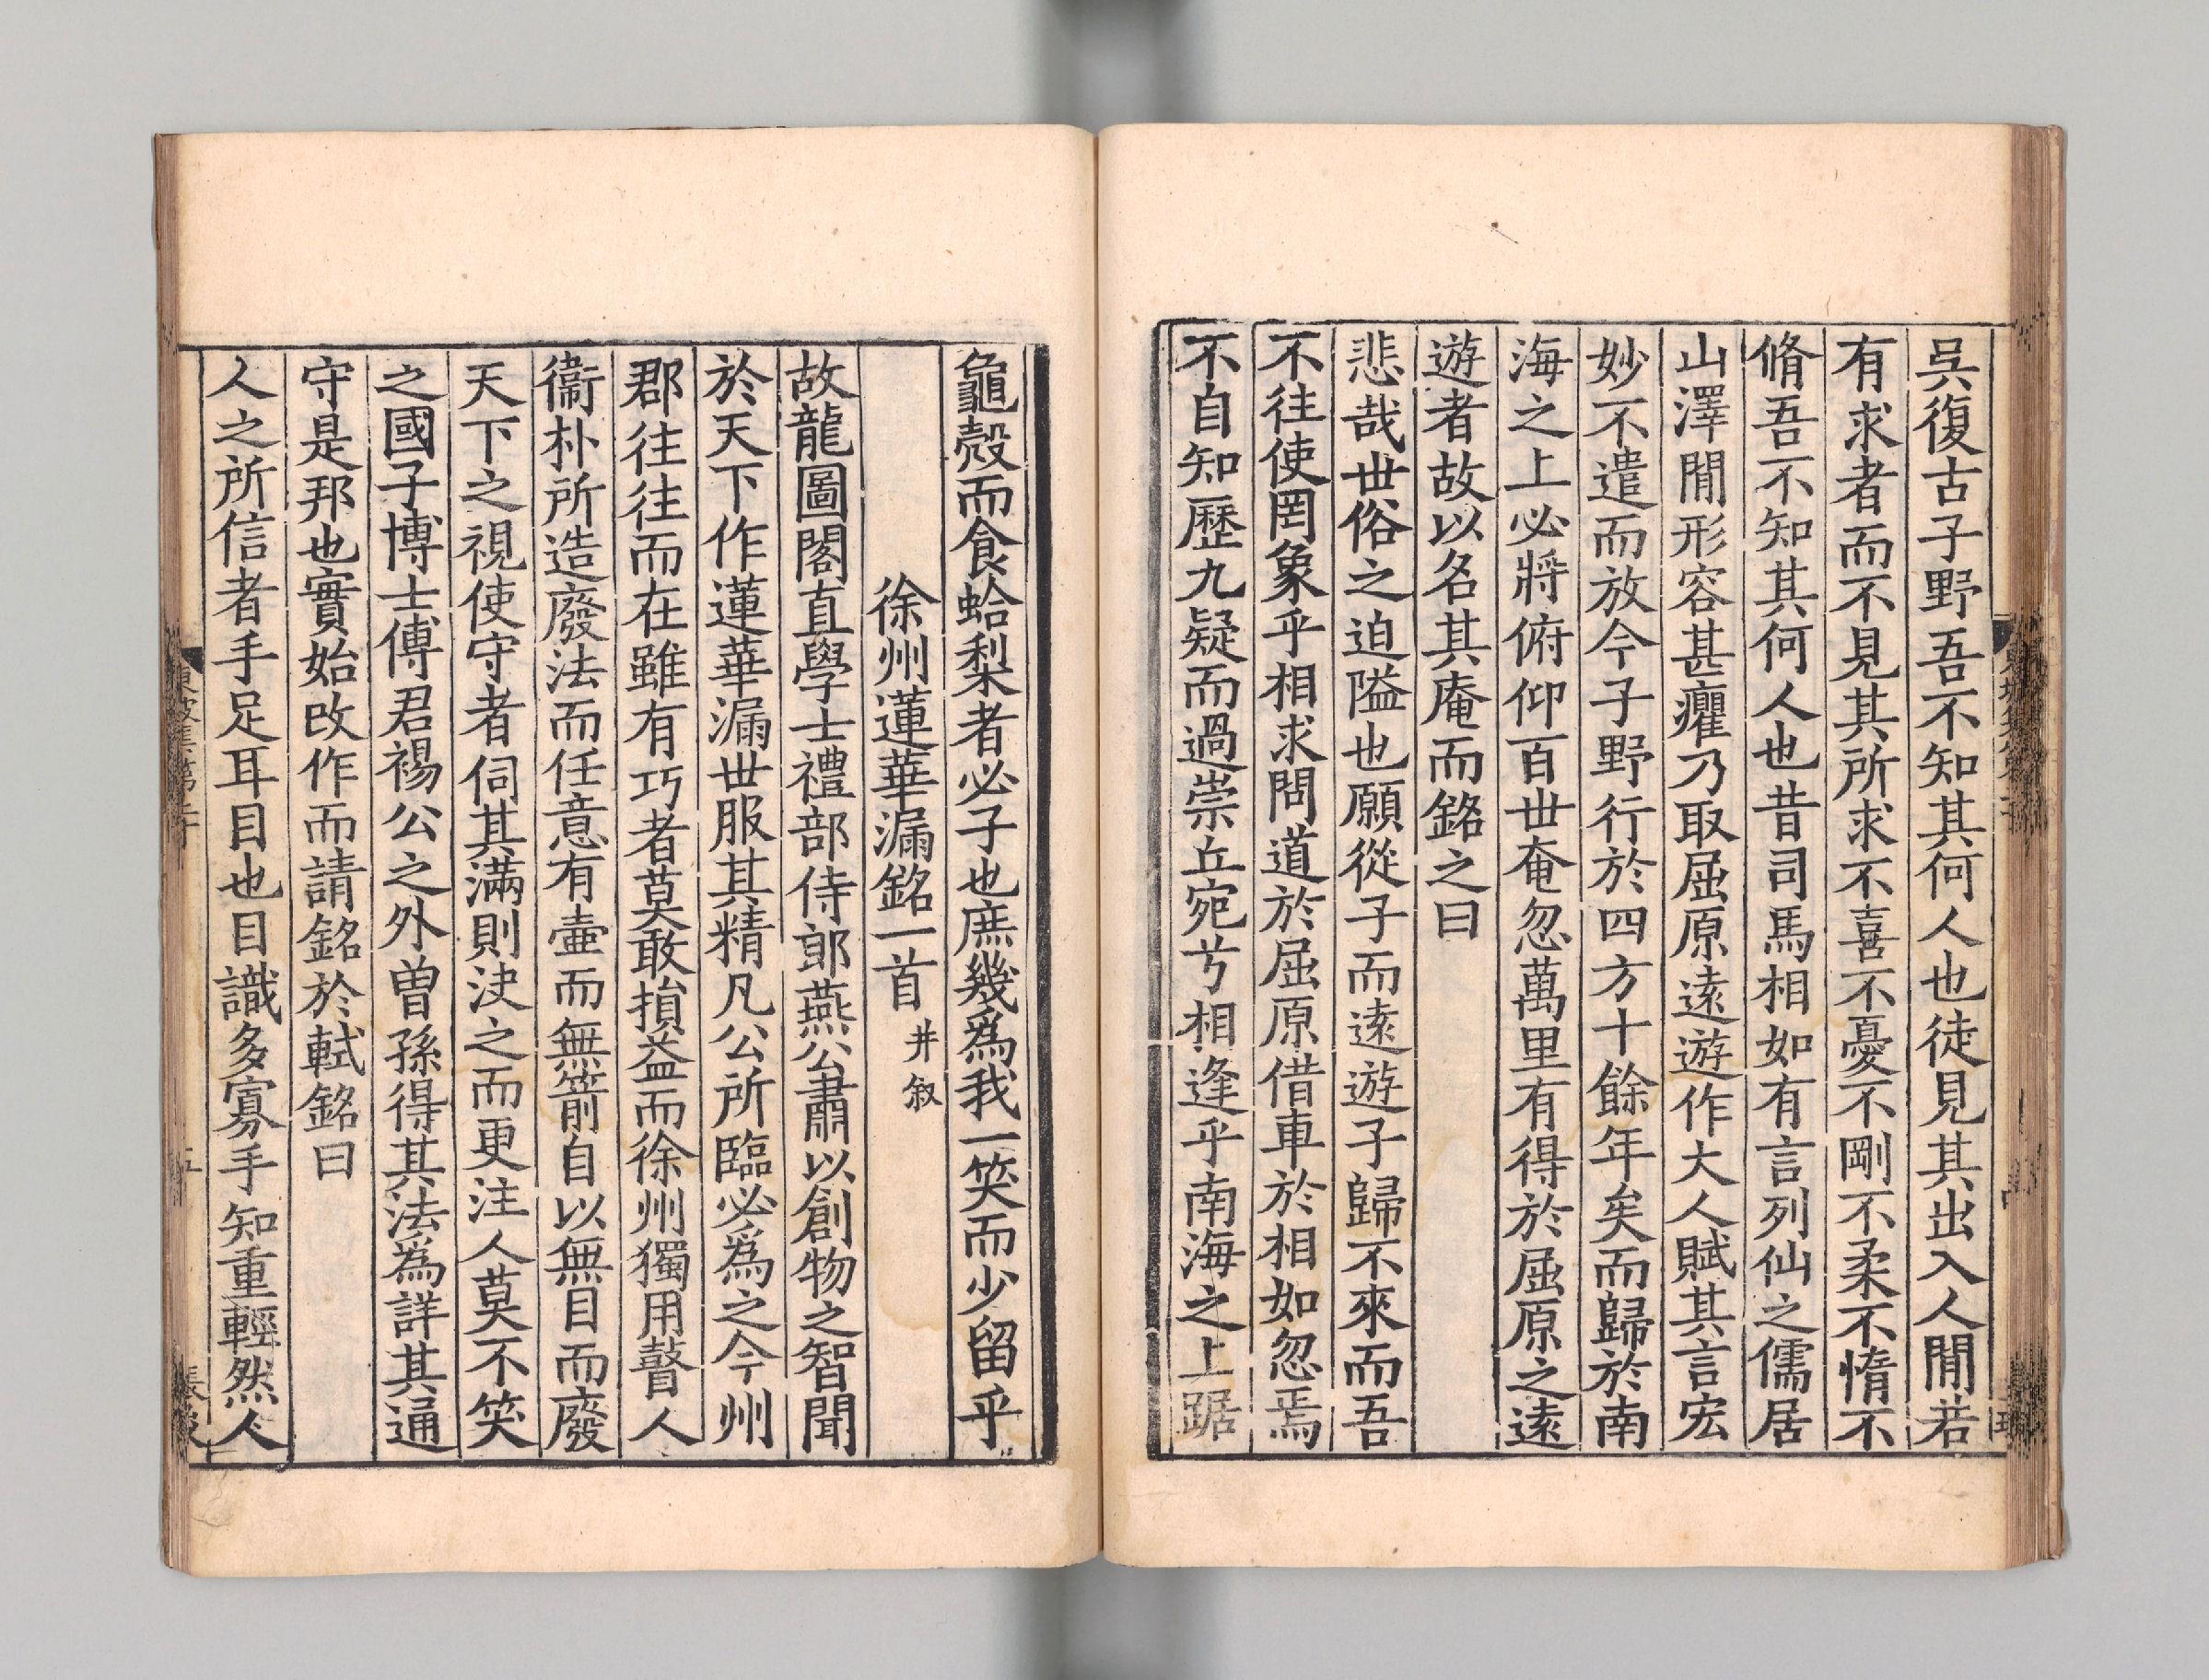 吳復古子野吾不知其何人也徒見其出入人閒若
有求者而不見其所求不喜不憂不剛不柔不惰不
脩吾不知其何人也昔司馬相如有言列仙之儒居
山澤閒形容甚癯乃取屈原遠遊作大人賦其言宏
妙不遣而放今子野行於四方十餘年矣而歸於南
海之上必將俯仰百世奄忽萬里有得於屈原之遠
遊者故以名其庵而銘之曰
悲哉世俗之迫隘也願從子而遠遊子歸不來而吾
不往使罔象乎相求問道於屈原借車於相如忽焉
不自知歷九疑而過崇丘宛兮相逢乎南海之上踞
龜殼而食蛤梨者必子也庶幾爲我一笑而少留乎
徐州蓮華漏銘一首 并叙
故龍圖閣直學士禮部侍郎燕公肅以創物之智聞
於天下作蓮華漏世服其精凡公所臨必爲之今州
郡往往而在雖有巧者莫敢損益而徐州獨用瞽人
衞朴所造廢法而任意有壷而無箭自以無目而廢
天下之視使守者伺其滿則决之而更注人莫不笑
之國子博士傅君裼公之外曾孫得其法爲詳其通
守是邦也實始改作而請銘於軾銘曰
人之所信者手足耳目也目識多寡手知重輕然人
東坡集第二十
五